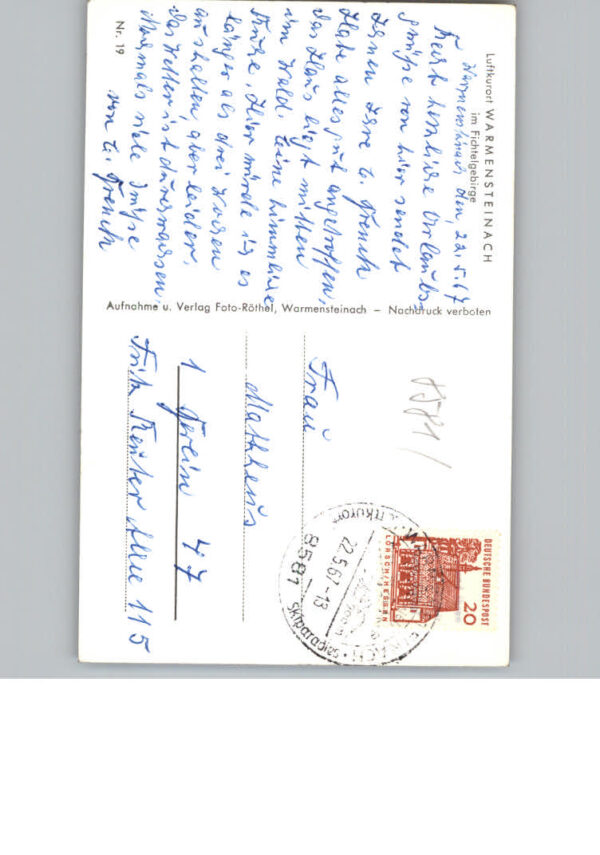 Luftkurort WARMENSTEINACH
im Fichtelgebirge
Warmensteinach, den 22.5.67
Recht herzliche Urlaubs-
grüße von hier sendet
Ihnen Ihre
Habe alles gut angetroffen,
das Haus liegt mitten
im Wald. Eine himmlische
Ruhe. Hier würde ich es
länger als drei Wochen
aushalten aber leider.
Das Wetter ist
Nochmals viele Grüße
von
Nr. 19
Aufnahme u. Verlag Foto-Röthel, Warmensteinach – Nachdruck verboten
8581
Frau
Mathheus
1 Berlin 47
Fritz Reuter Allee 115
DEUTSCHE BUNDESPOST
20
LORSCH/HESSEN
Luftkurort
22.5.67-13
8581
Skiparadies